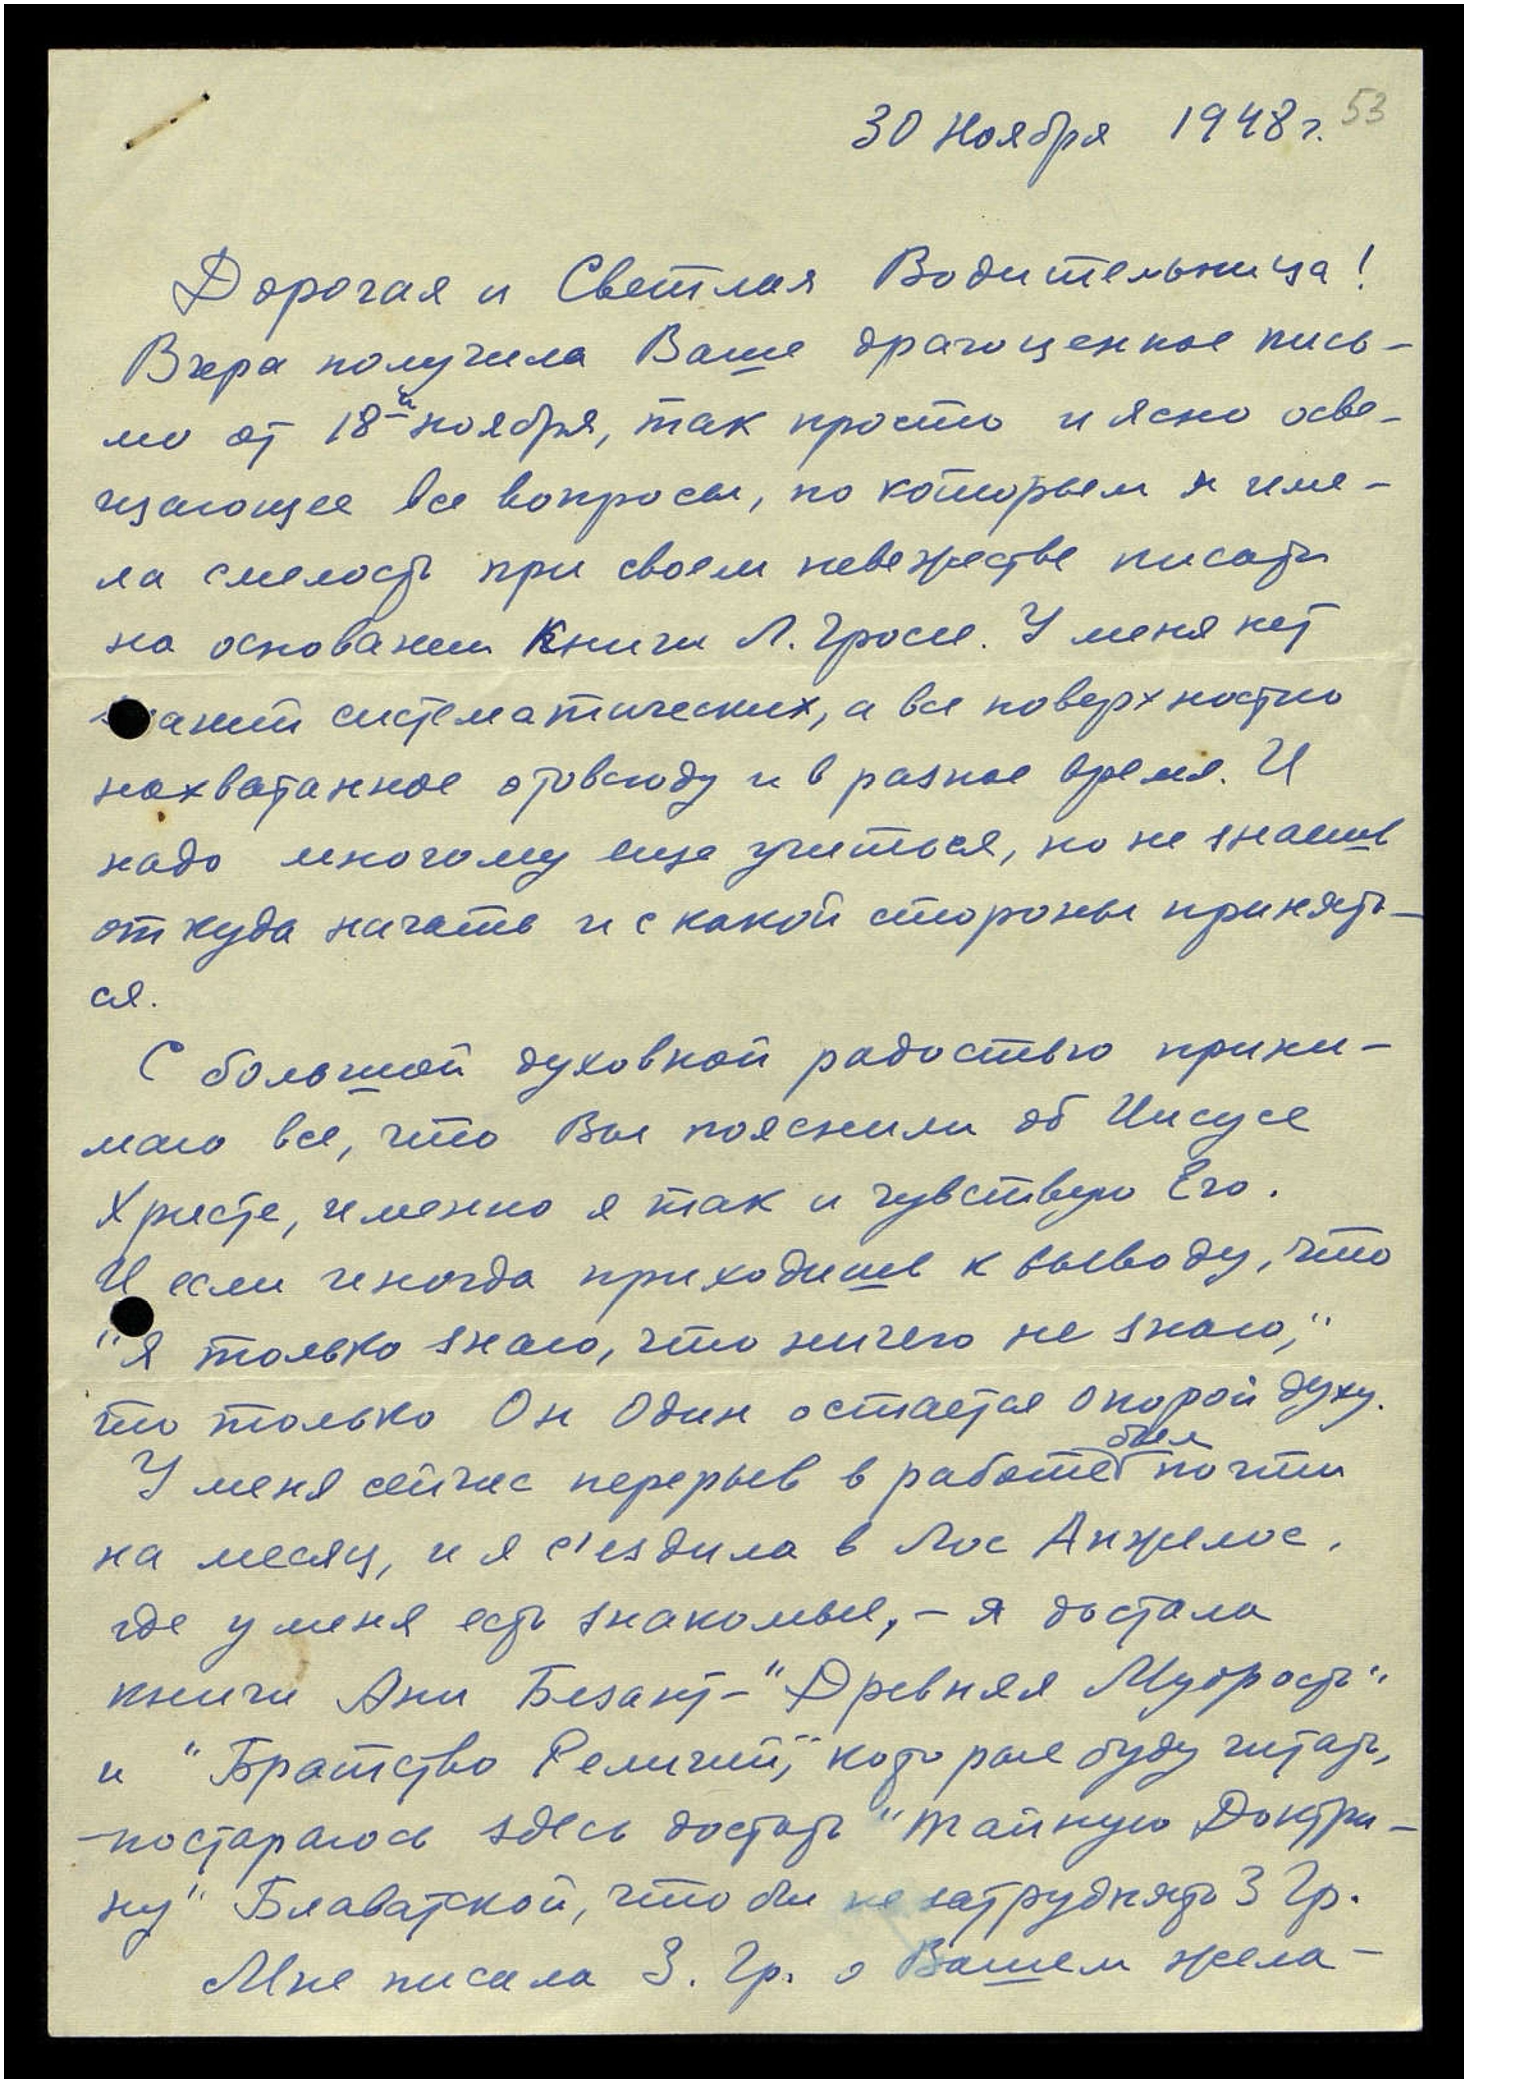 53
30 Ноября 1948 г.
Дорогая и Светлая Водительница!
Вчера получила Ваше драгоценное пись-
мо от 18-й ноября, так просто и ясно осве-
щающее все вопросы, по которым я име-
ла смелость при своем невежестве писать
на основании Книги Л. Гросс. У меня нет
знаний систематических, а все поверхностно
нахватанное отовсюду и в разное время. И
надо многому еще учиться, но не знаешь
откуда начать и с какой стороны принять-
ся.
С большой духовной радостью прини-
маю все, что Вы пояснили об Иисусе
Христе, именно я так и чувствую Его.
И если иногда приходишь к выводу, что
"Я только знаю, что ничего не знаю,"
то только Он Один остается опорой духу.
У меня сейчас перерыв в работе был почти
на месяц, и я с'ездила в Лос Анжелос,
где у меня есть знакомые, - я достала
книги Ани Безант - "Древняя Мудрость"
и "Братство Религий", которые буду читать,
-постараюсь здесь достать "Тайную Доктри-
ну" Блаватской, что бы не затруднять З Гр.
Мне писала З. Гр. о Вашем жела-